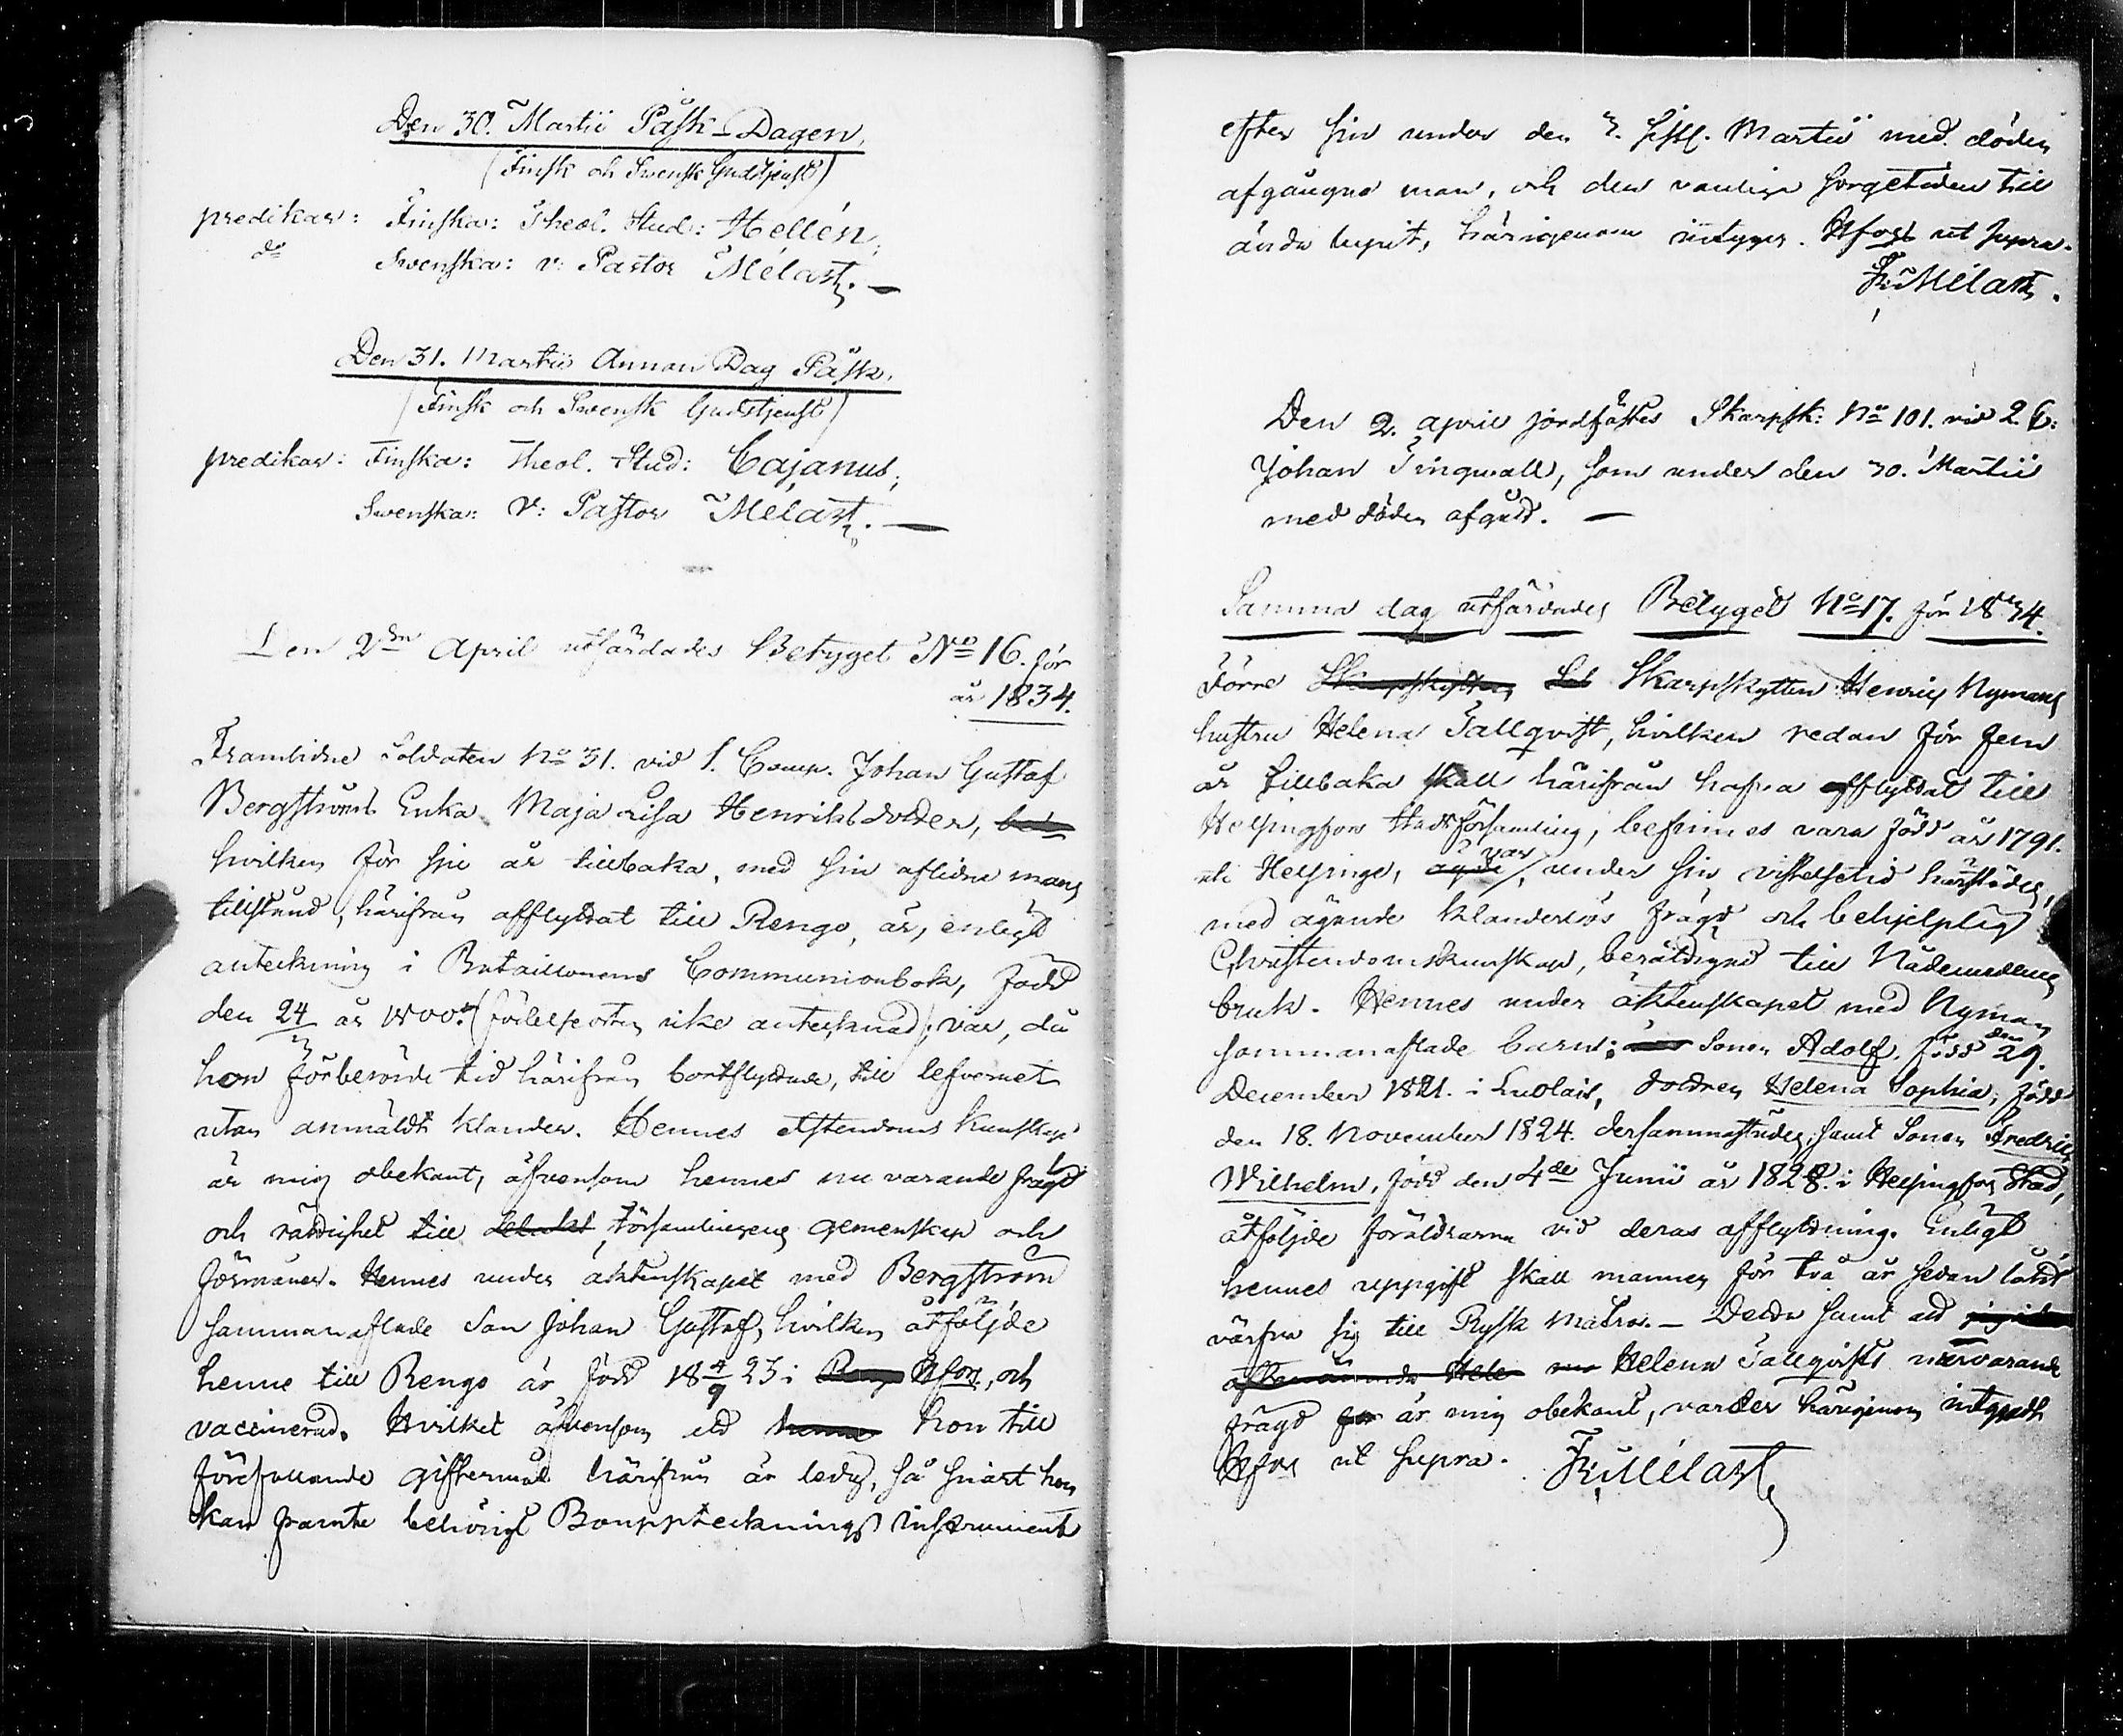 Den 30. Martii Påsk-Dagen.
(Finsk och Swensk Gudstjenst)
predikar: Finska: Theol. Stud: Hellén,
do Swenska: v: Pastor Mélart. —
Den 31. Martii Annan Dag Påsk.
(Finsk och Swensk Gudstjenst)
predikar: Finska: Theol. Stud: Cajanus,
Swenska: V: Pastor Mélart. —
Den 2dra April utfärdades Betyget No 16. för
år 1834.
Framlidne Soldaten No 31. vid 1. Comp. Johan Gustaf
Bergströms Enka Maja Lisa Henriksdotter,
hvilken för sju år tillbaka, med sin aflidne mans
tillstånd, härifrån afflyttat till Rengo, är, enligt
anteckning i Bataillonens Communionbok, född
den 24/3 år 1800. (födelseorten icke antecknad); var, då
hon förberörde tid härifrån bortflyttade, till lefvernet
utan anmäldt klander. Hennes Christendoms kunskap
är mig obekant, äfvensom hennes nu varande frägd
och rättighet till församlingens gemenskap och
förmåner. Hennes under äktenskapet med Bergström
sammanaflade Son Johan Gustaf, hvilken åtföljde
henne till Rengo är född 18 4/9 23 i Hfors, och
vaccinerad. Hvilket äfvensom att hon till
förefallande giftermål härifrån är ledig, så snart hon
kan framte behörigt Bouppteckningsinstrument
efter sin under den 3. sistl. Martii med döden
afgångna man, och den vanliga sorgetiden till
ända lupit, härigenom intygas. Hfors ut supra.
Fr: Mélart.
Den 2. April jordfästes Skarpsk: No 101. vid 2. C:
Johan Tingwall, som under den 30. Martii
med döden afgått. —
Samma dag utfärdades Betyget No 17. för 1834.
Förre Skarpskytten Henric Nymans
hustru Helena Tallqvist, hvilken redan för fem
år tillbaka skall härifrån hafva afflyttat till
Helsingfors Stadsförsamling, befinnes vara född år 1791.
uti Helsinge, var, under sin vistelsetid härstädes,
med ägande klanderlös frägd och behjelplig
Christendomskunskap, berättigad till Nådemedlens
bruk. Hennes under äktenskapet med Nyman
sammanaflade barn: Sonen Adolf, född den 29.
December 1821. i Luolais, dottren Helena Sophia, född
den 18. November 1824. dersammastädes; samt Sonen Fredric
Wilhelm, född den 4de Junii år 1828. i Helsingfors Stad,
åtföljde föräldrarna vid deras afflyttning. Enligt
hennes uppgift skall mannen för två år sedan låtit
värfva sig till Rysk Matros. — Detta samt att
Helena Tallqvists nuvarande
frägd är mig obekant, varder härigenom intygadt
Hfors ut supra. Fr: Mélart